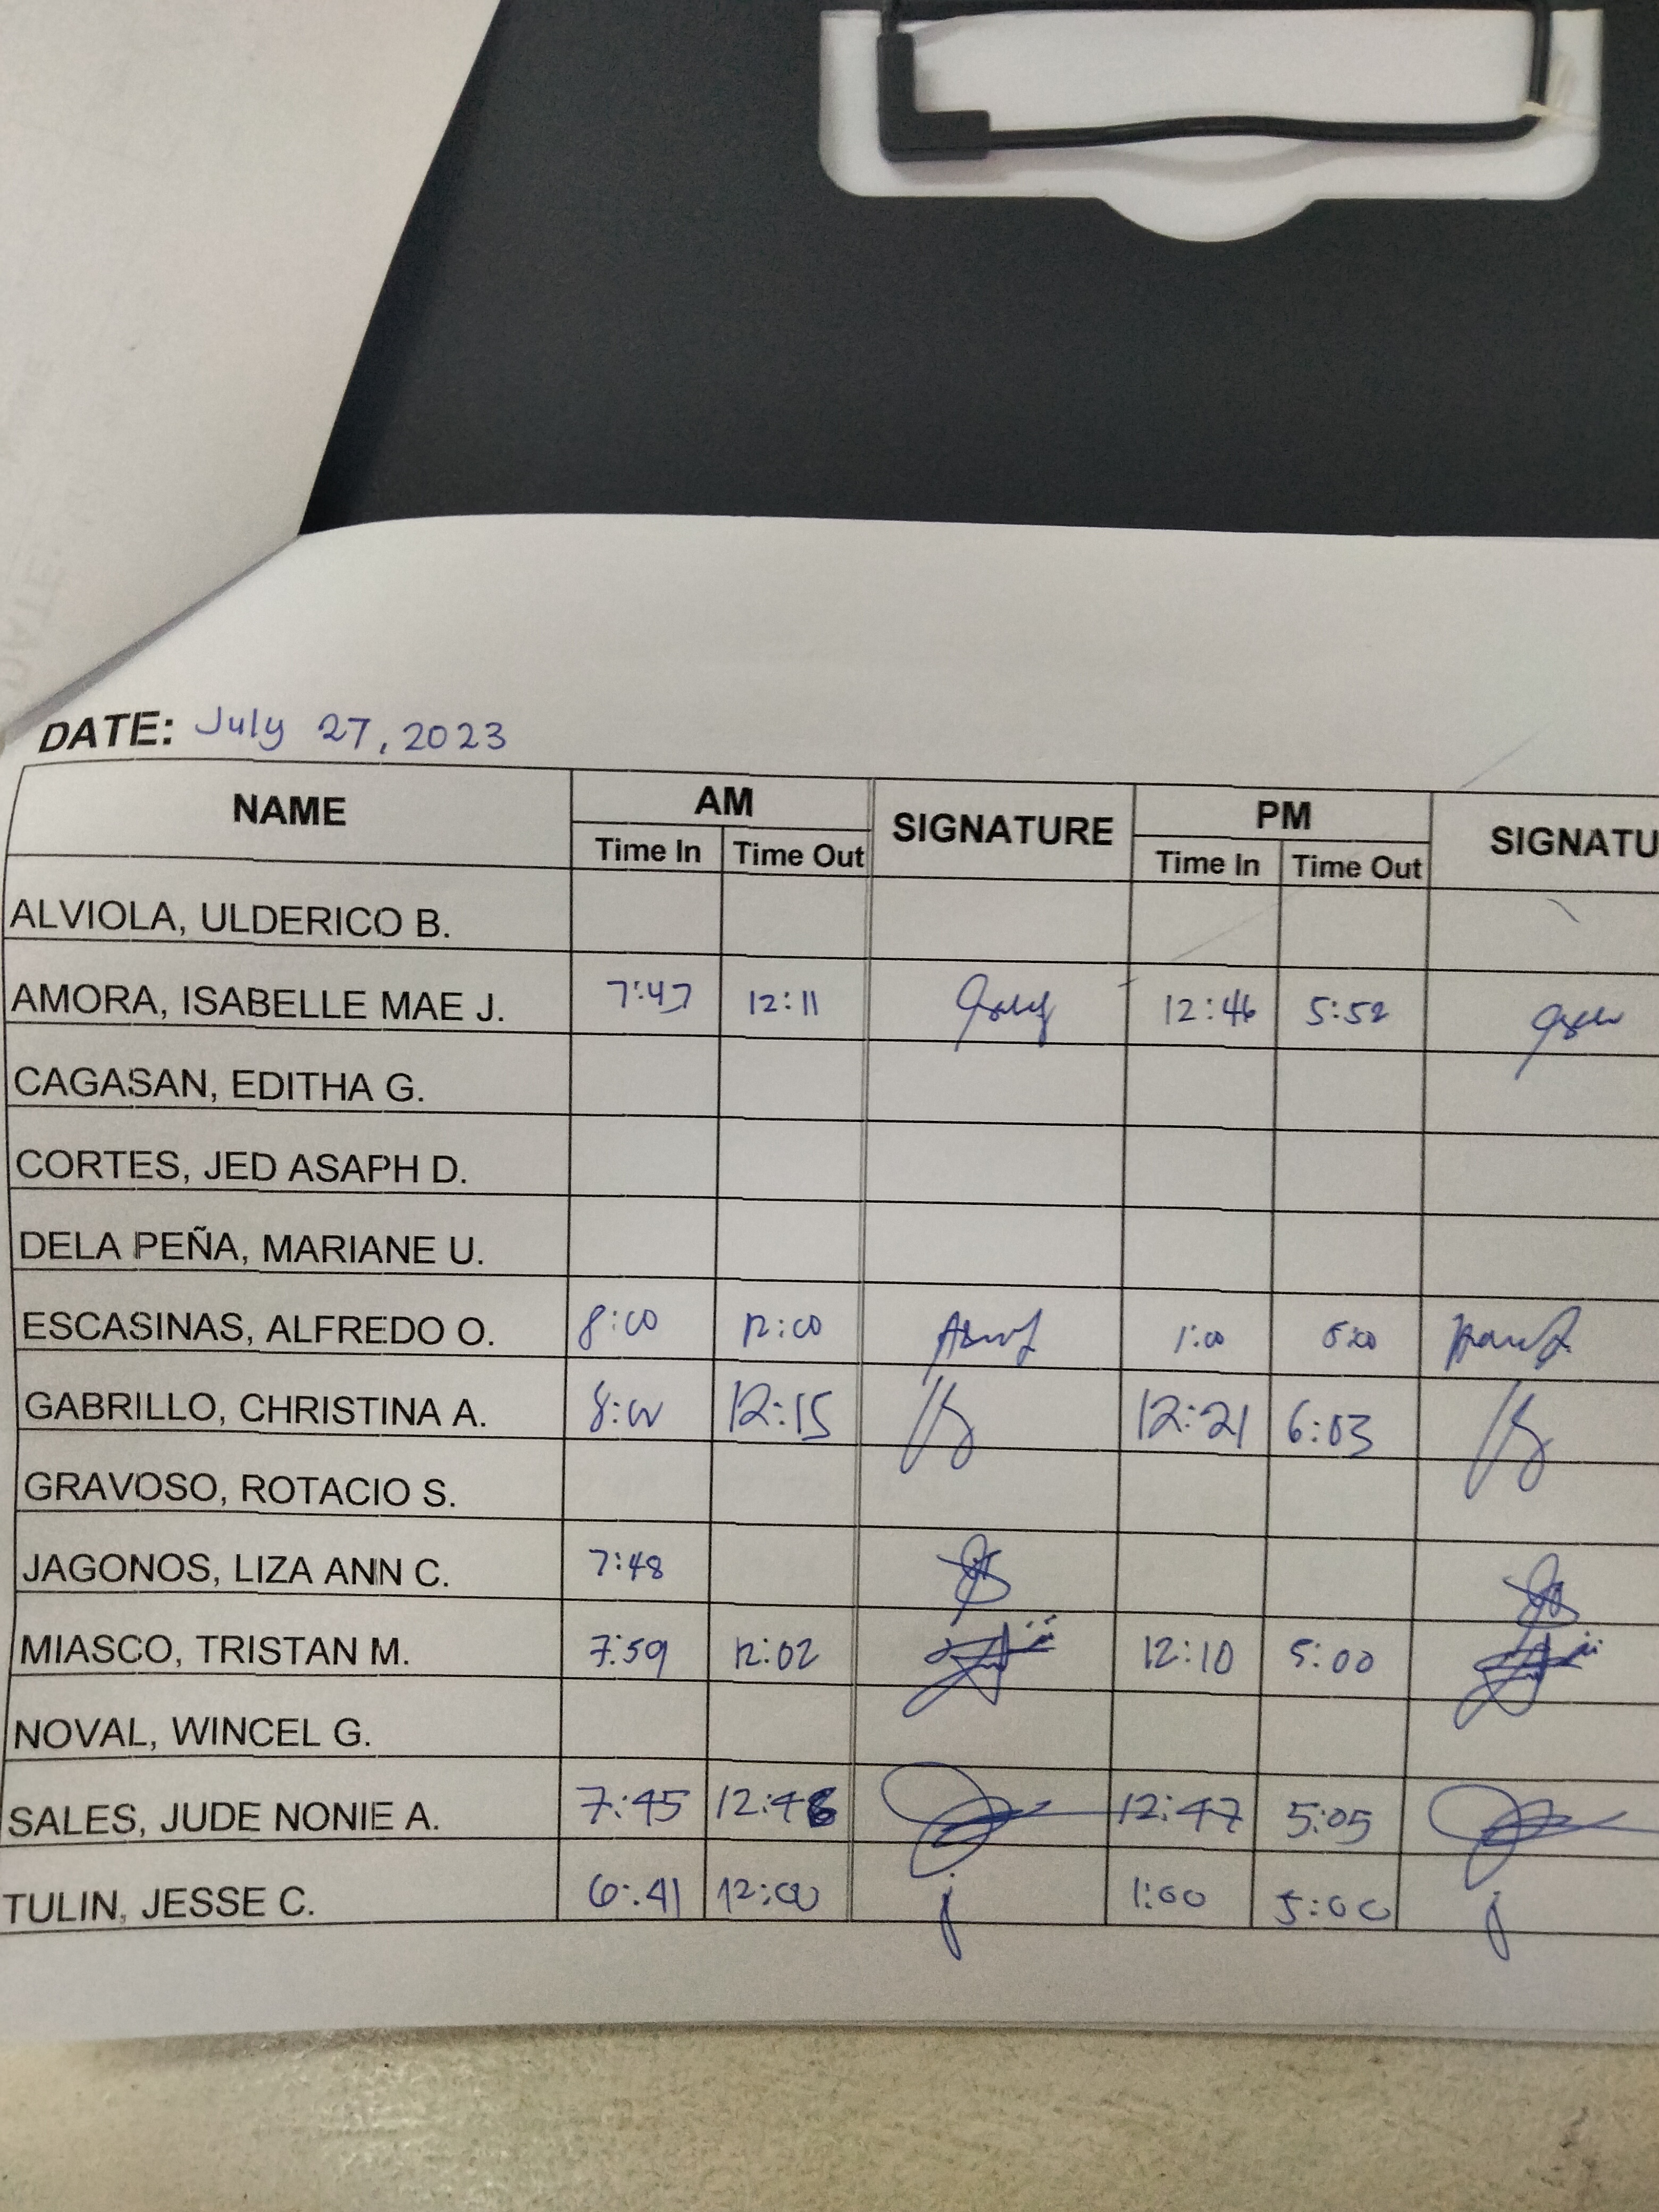 DATE: July 27, 2023
NAME AM SIGNATURE PM SIGNATU
Time In Time Out Time In Time Out
ALVIOLA, ULDERICO B.
AMORA, ISABELLE MAE J. 7:47 12:11 12:46 5:52
CAGASAN, EDITHA G.
CORTES, JED ASAPH D.
DELA PEÑA, MARIANE U.
ESCASINAS, ALFREDO O. 8:00 12:00 1:00
GABRILLO, CHRISTINA A. 8:00 12:15 12:21 6:03
GRAVOSO, ROTACIO S.
JAGONOS, LIZA ANN C. 7:48
MIASCO, TRISTAN M. 7:59 12:02 12:10 5:00
NOVAL, WINCEL G.
SALES, JUDE NONIE A. 7:45 12:46 12:47 5:05
TULIN, JESSE C. 6:41 12:00 1:00 5:00